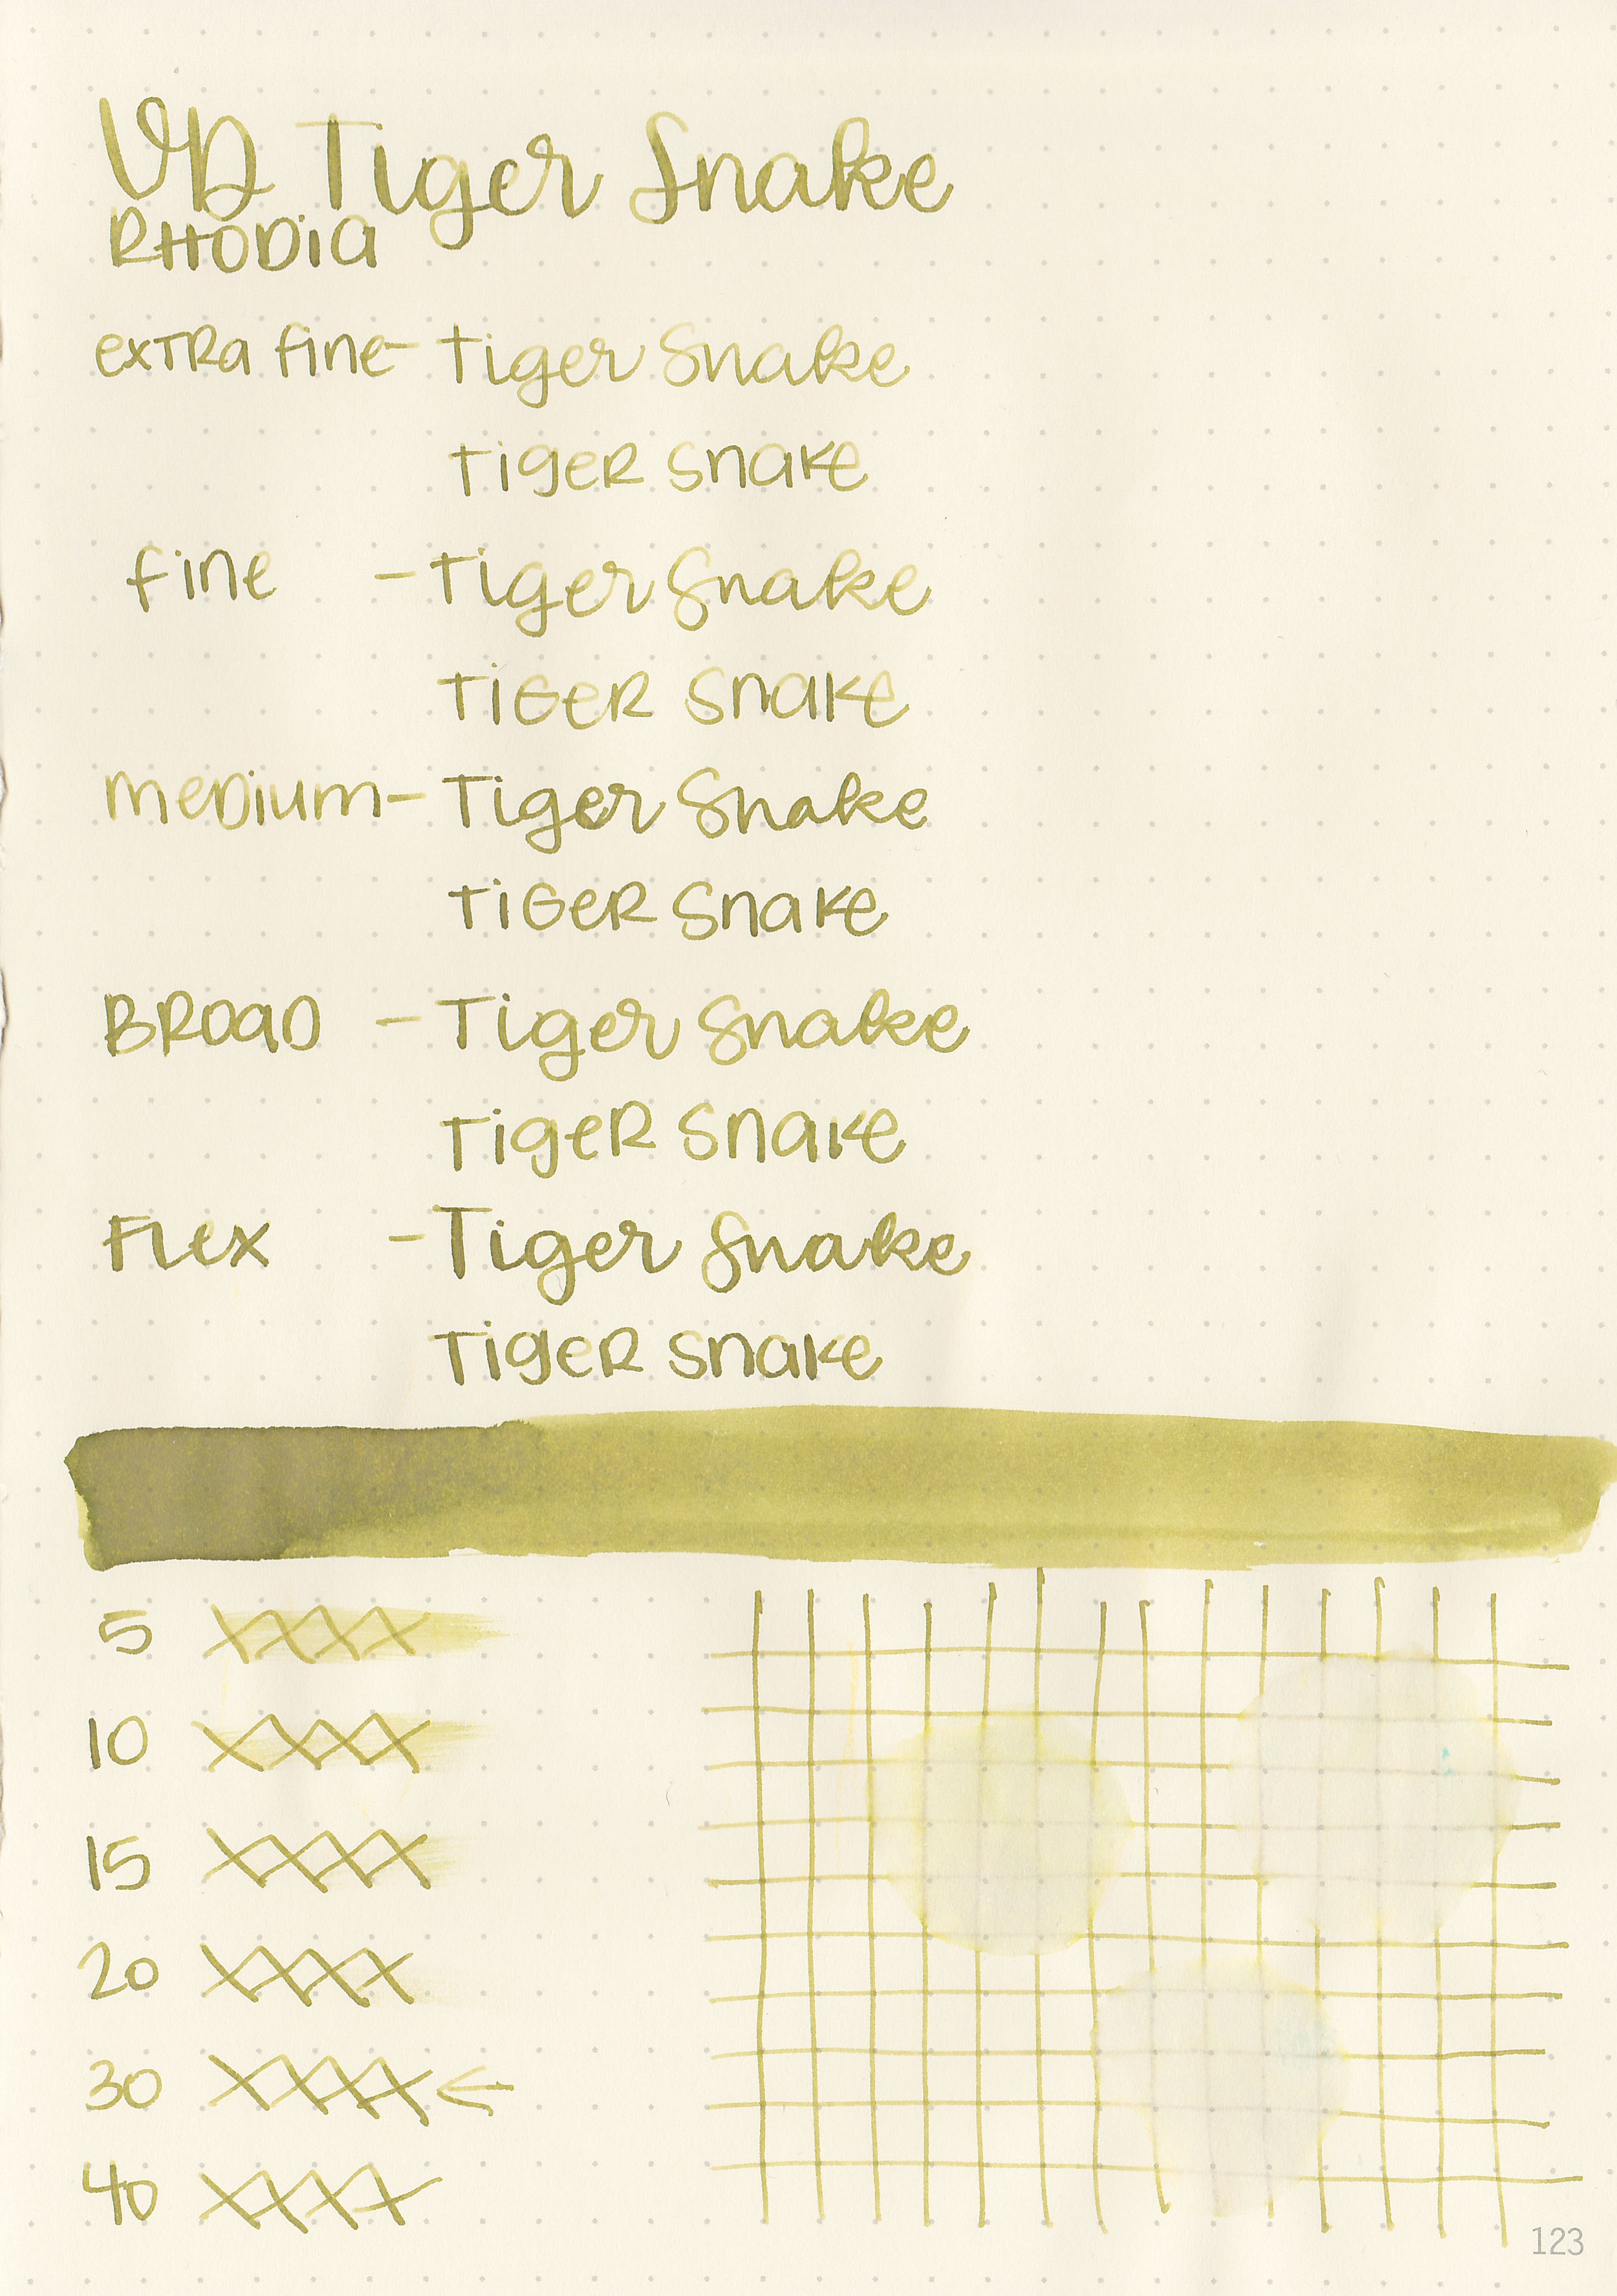 VD Tiger Snake
RHODIA
exTRa fine - Tiger Snake
TigeR Snake
fine - Tiger Snake
TiGeR Snake
meDium - Tiger Snake
TiGeR Snake
BROaD - Tiger Snake
TigeR Snake
Flex - Tiger Snake
TigeR Snake
5 XXXX
10 XXXX
15 XXXX
20 XXXX
30 XXXX ←
40 XXXX
123